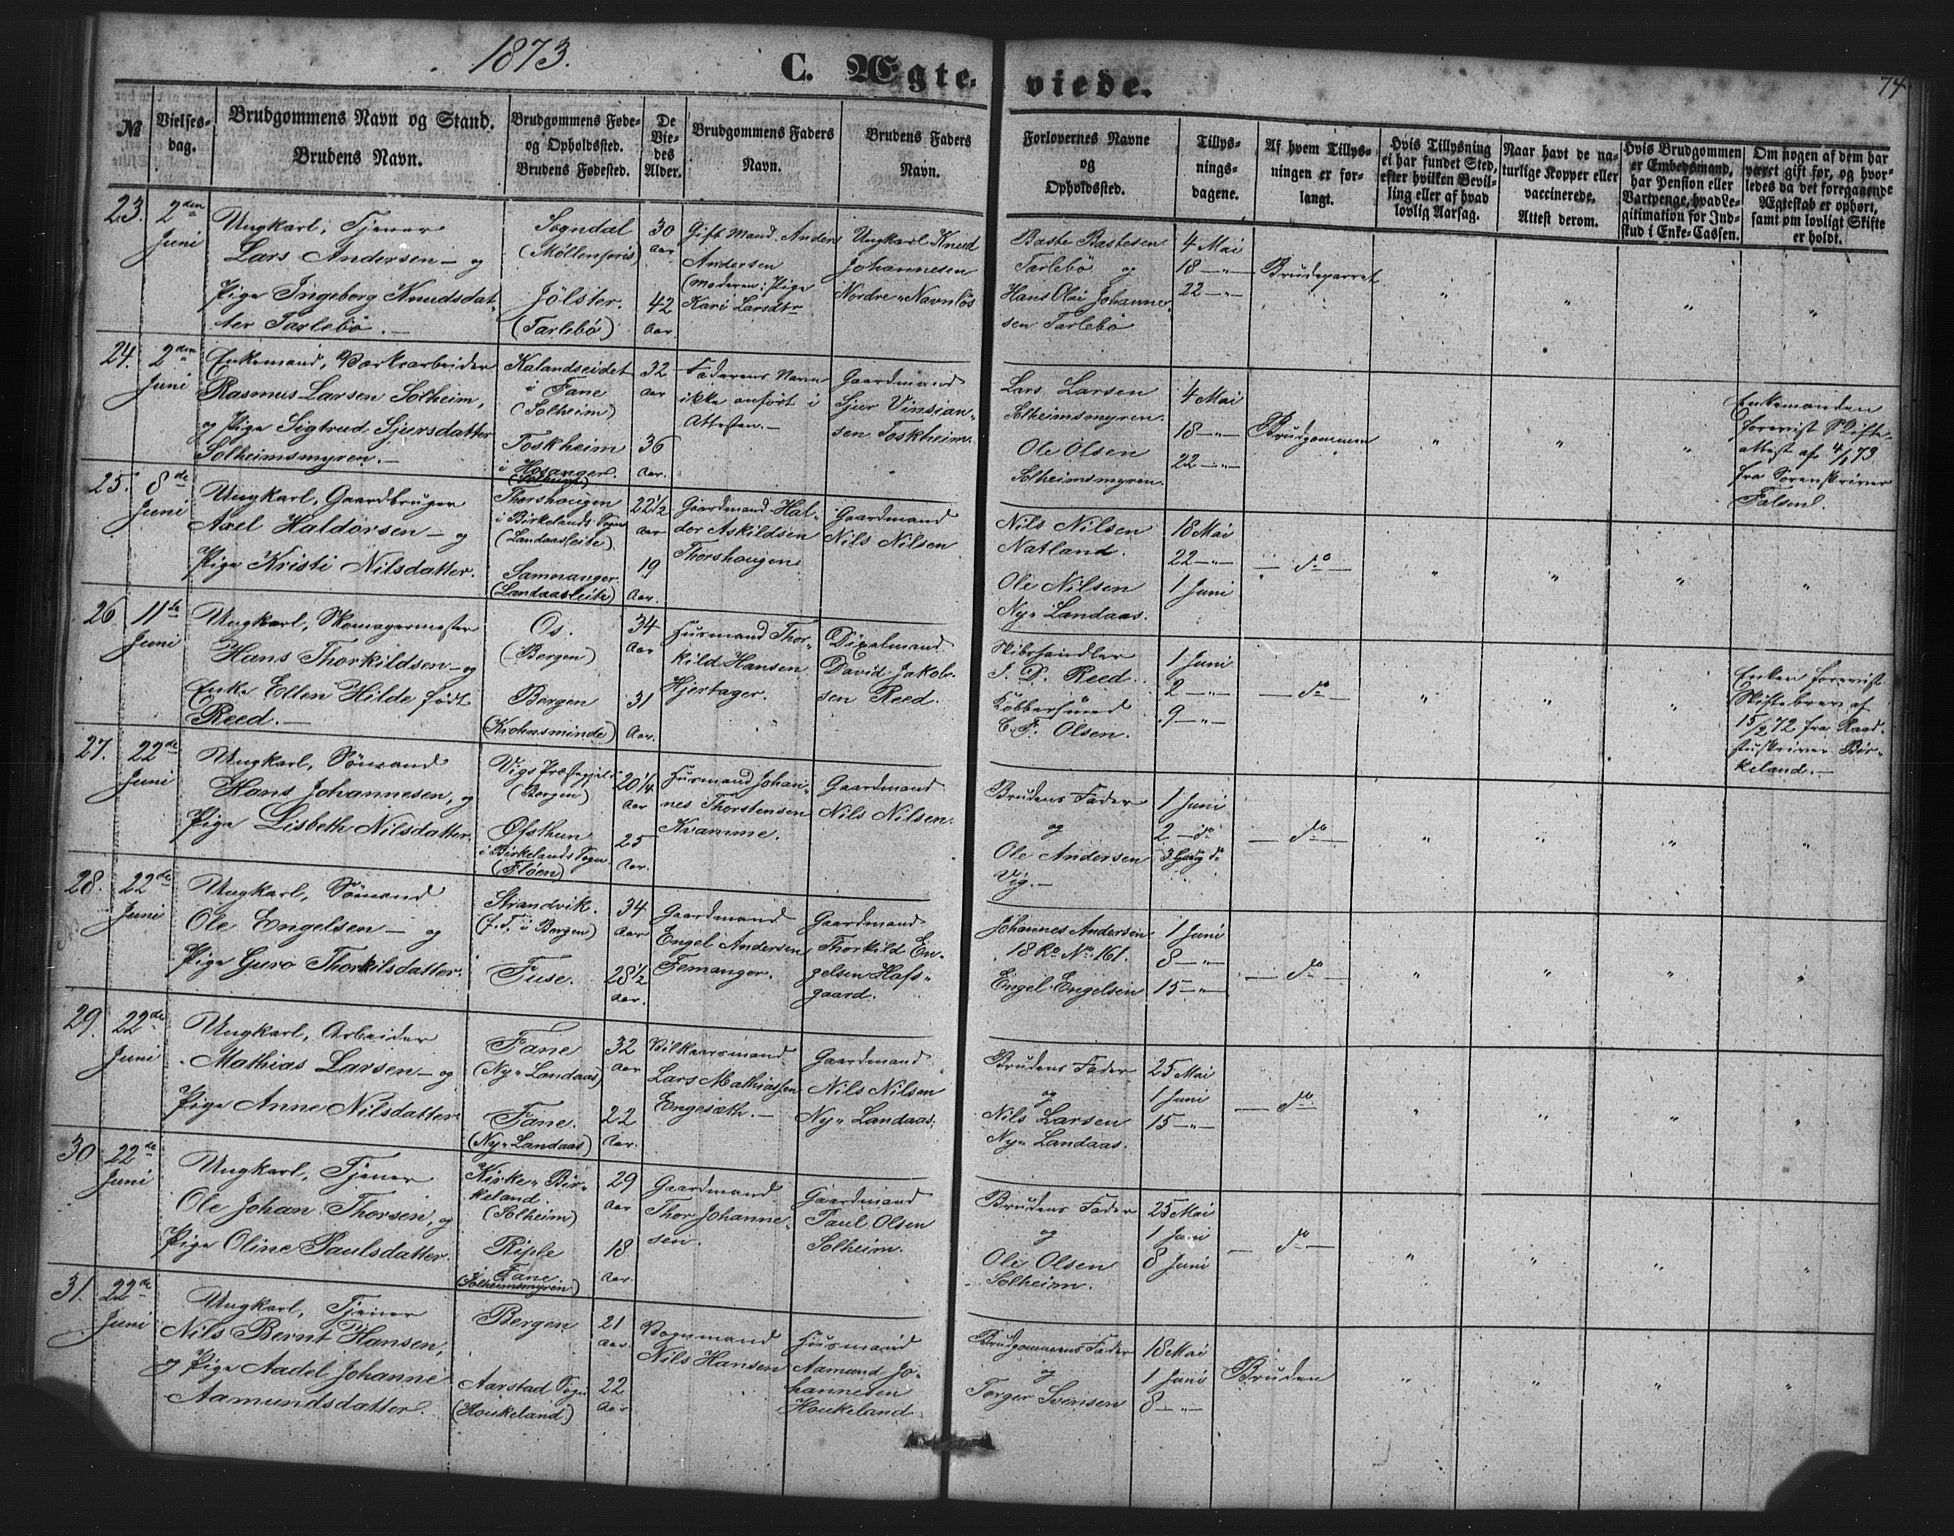 1873.
C. Ægte-
viede.
74
№
Vielses-
dag.
Brudgommens Navn og Stand.
Brudens Navn.
Brudgommens Føde-
og Opholdssted.
Brudens Fødested.
De
Vie-
des
Alder.
Brudgommens Faders
Navn.
Brudens Faders
Navn.
Forlovernes Navne
og
Opholdssted.
Tillys-
nings-
dagene.
Af hvem Tillys-
ningen er for-
langt.
Hvis Tillysning
ei har fundet Sted,
efter hvilken Bevil-
ling eller af hvad
lovlig Aarsag.
Naar havt de na-
turlige Kopper eller
vaccinerede.
Attest derom.
Hvis Brudgommen
er Embedsmand,
har Pension eller
Vartpenge, hvad Le-
gitimation for Ind-
skud i Enke-Cassen.
Om nogen af dem har
været gift før, og hvor-
ledes da det foregaaende
Ægteskab er ophørt,
samt om lovligt Skifte
er holdt.
23.
2den
Juni
Ungkarl, Tjener
Lars Andersen – og
Pige Ingeborg Knudsdat-
ter Tarlebø. –
Sogndal
(Møllenpris)
Jølster.
(Tarlebø)
30
Aar
42
Aar
Gift Mand Anders
Andersen
(Moderen: Pige
Kari Larsdtr
Ungkarl Knud
Johannesen
Nordre Navnløs
Baste Bastesen
Tarlebø og
Hans Olai Johanne-
sen Tarlebø
4 Mai
18 – " –
22 – " –
Brudeparret
24.
2den
Juni
Enkemand, Værksarbeider
Rasmus Larsen Solheim,
og Pige Sigtrud Sjursdatter
Solheimsmyren. –
Kalandseidet
i Fane
(Solheim)
Toskheim
i Hosanger.
(Solheim)
32
Aar
36
Aar.
Faderens Navn
ikke anført i
Attesten. –
Gaardmand
Sjur Vinsian-
sen Toskheim.
Lars Larsen
Solheimsmyren.
Ole Olsen
Solheimsmyren.
4 Mai
18 – " –
22 – " –
Brudgommen
Enkemanden
forevist Skifte-
attest af 4/1 73
fra Sorenskriver
Falsen.
25.
8de
Juni
Ungkarl, Gaardbruger
Axel Haldorsen – og
Pige Kristi Nilsdatter.
Thorshaugen
i Birkelands Sogn
(Landaasleite)
Samnanger.
(Landaasleite)
22 1/2
Aar
19
Aar.
Gaardmand Hal-
dor Askildsen
Thorshaugen
Gaardmand
Nils Nilsen
Nils Nilsen
Natland.
Ole Nilsen
Ny Landaas.
18 Mai
22 – " –
1 Juni
– do –
26.
11te
Juni
Ungkarl, Skomagermester
Hans Thorkildsen – og
Enke Ellen Hilde født
Reed. –
Os.
(Bergen)
Bergen
(Krohnsminde)
34
Aar
31
Aar.
Husmand Thor-
kild Hansen
Hjertager.
Dixelmand
David Jakob-
sen Reed.
Skibshandler
J. D. Reed.
Kobbersmed
C. F. Olsen.
1 Juni
2 – " –
9 – " –
– do –
Enken forevist
Skiftebrev af
15/2 72 fra Raad-
stuskriver Bir-
keland. –
27.
22de
Juni
Ungkarl, Sömand
Hans Johannesen, og
Pige Lisbeth Nilsdatter.
Vigs Præstegjeld
(Bergen)
Øfsthun
i Birkelands Sogn
(Fløen)
20 1/4
Aar
25
Aar.
Husmand Johan-
nes Thorstensen
Kvamme.
Gaardmand
Nils Nilsen.
Brudens Fader
og
Ole Andersen
Vig. –
1 Juni
2 – do
3 Gang do
– do –
28.
22de
Juni
Ungkarl, Sömand
Ole Engelsen – og
Pige Guro Thorkilsdatter.
Strandvik.
(f. T. i Bergen)
Fuse.
34
Aar
28 1/2
Aar.
Gaardmand
Engel Andersen
Femanger.
Gaardmand
Thorkild En-
gelsen Hafs-
gaard.
Johannes Andersen
18 Ro No 161.
Engel Engelsen
1 Juni
8 – " –
15 – " –
– do –
29.
22de
Juni
Ungkarl, Arbeider
Mathias Larsen – og
Pige Anne Nilsdatter
Fane
(Ny Landaas)
Fane.
(Ny Landaas)
32
Aar
22
Aar.
Vilkaarsmand
Lars Mathiassen
Engesæth. –
Gaardmand
Nils Nilsen
Ny Landaas.
Brudens Fader
og
Nils Larsen
Ny Landaas.
25 Mai
1 Juni
15 – " –
– do –
30
22de
Juni
Ungkarl, Tjener
Ole Johan Thorsen, og
Pige Oline Paulsdatter.
Kirke-Bir-
keland.
(Solheim)
Riple
i Fane.
(Solheimsmyren)
29
Aar
18
Aar.
Gaardmand
Thor Johanne-
sen.
Gaardmand
Paul Olsen
Solheim.
Brudens Fader
og
Ole Olsen
Solheim.
25 Mai
1 Juni
8 Juni
– do –
31.
22de
Juni
Ungkarl, Tjener
Nils Bernt Hansen,
og Pige Aadel Johanne
Aamundsdatter.
Bergen
Aarstad Sogn
(Houkeland)
21
Aar
22
Aar
Vognmand
Nils Hansen
Husmand
Aamund Jo-
hannesen
Houkeland
Brudgommens Fader
og
Torger Svensen
18 Mai
1 Juni
8 – " –
Bruden